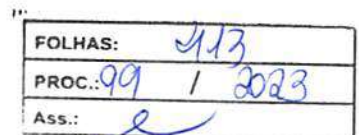 FOLHAS: 413
PROC.: 99 / 2023
Ass.: